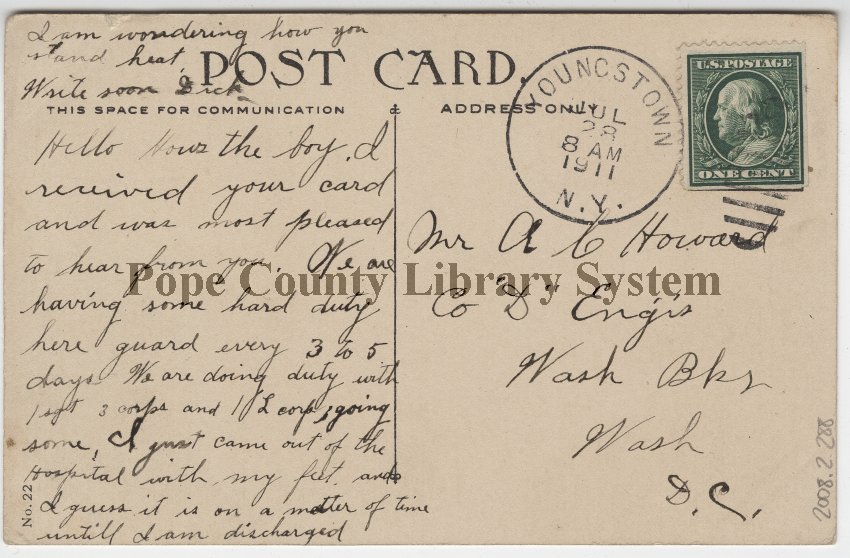 I am wondering how you
stand heat
Write soon Dick
POST CARD.
THIS SPACE FOR COMMUNICATION & ADDRESS ONLY
YOUNGSTOWN
JUL
28
8 AM
1911
N.Y.
U.S. POSTAGE
ONE CENT
Hello Hows the boy. I
received your card
and was most pleased
to hear from you. We are
having some hard duty
here guard every 3 to 5
days. We are doing duty with
1 sgt 3 corps and 1 L corp, going
some, I just came out of the
Hospital with my feet and
I guess it is on a matter of time
untill I am discharged
Mr A C Howard
Co "D" Engis
Wash Bks
Wash
D.C.
Pope County Library System
No. 22
2008.2.288